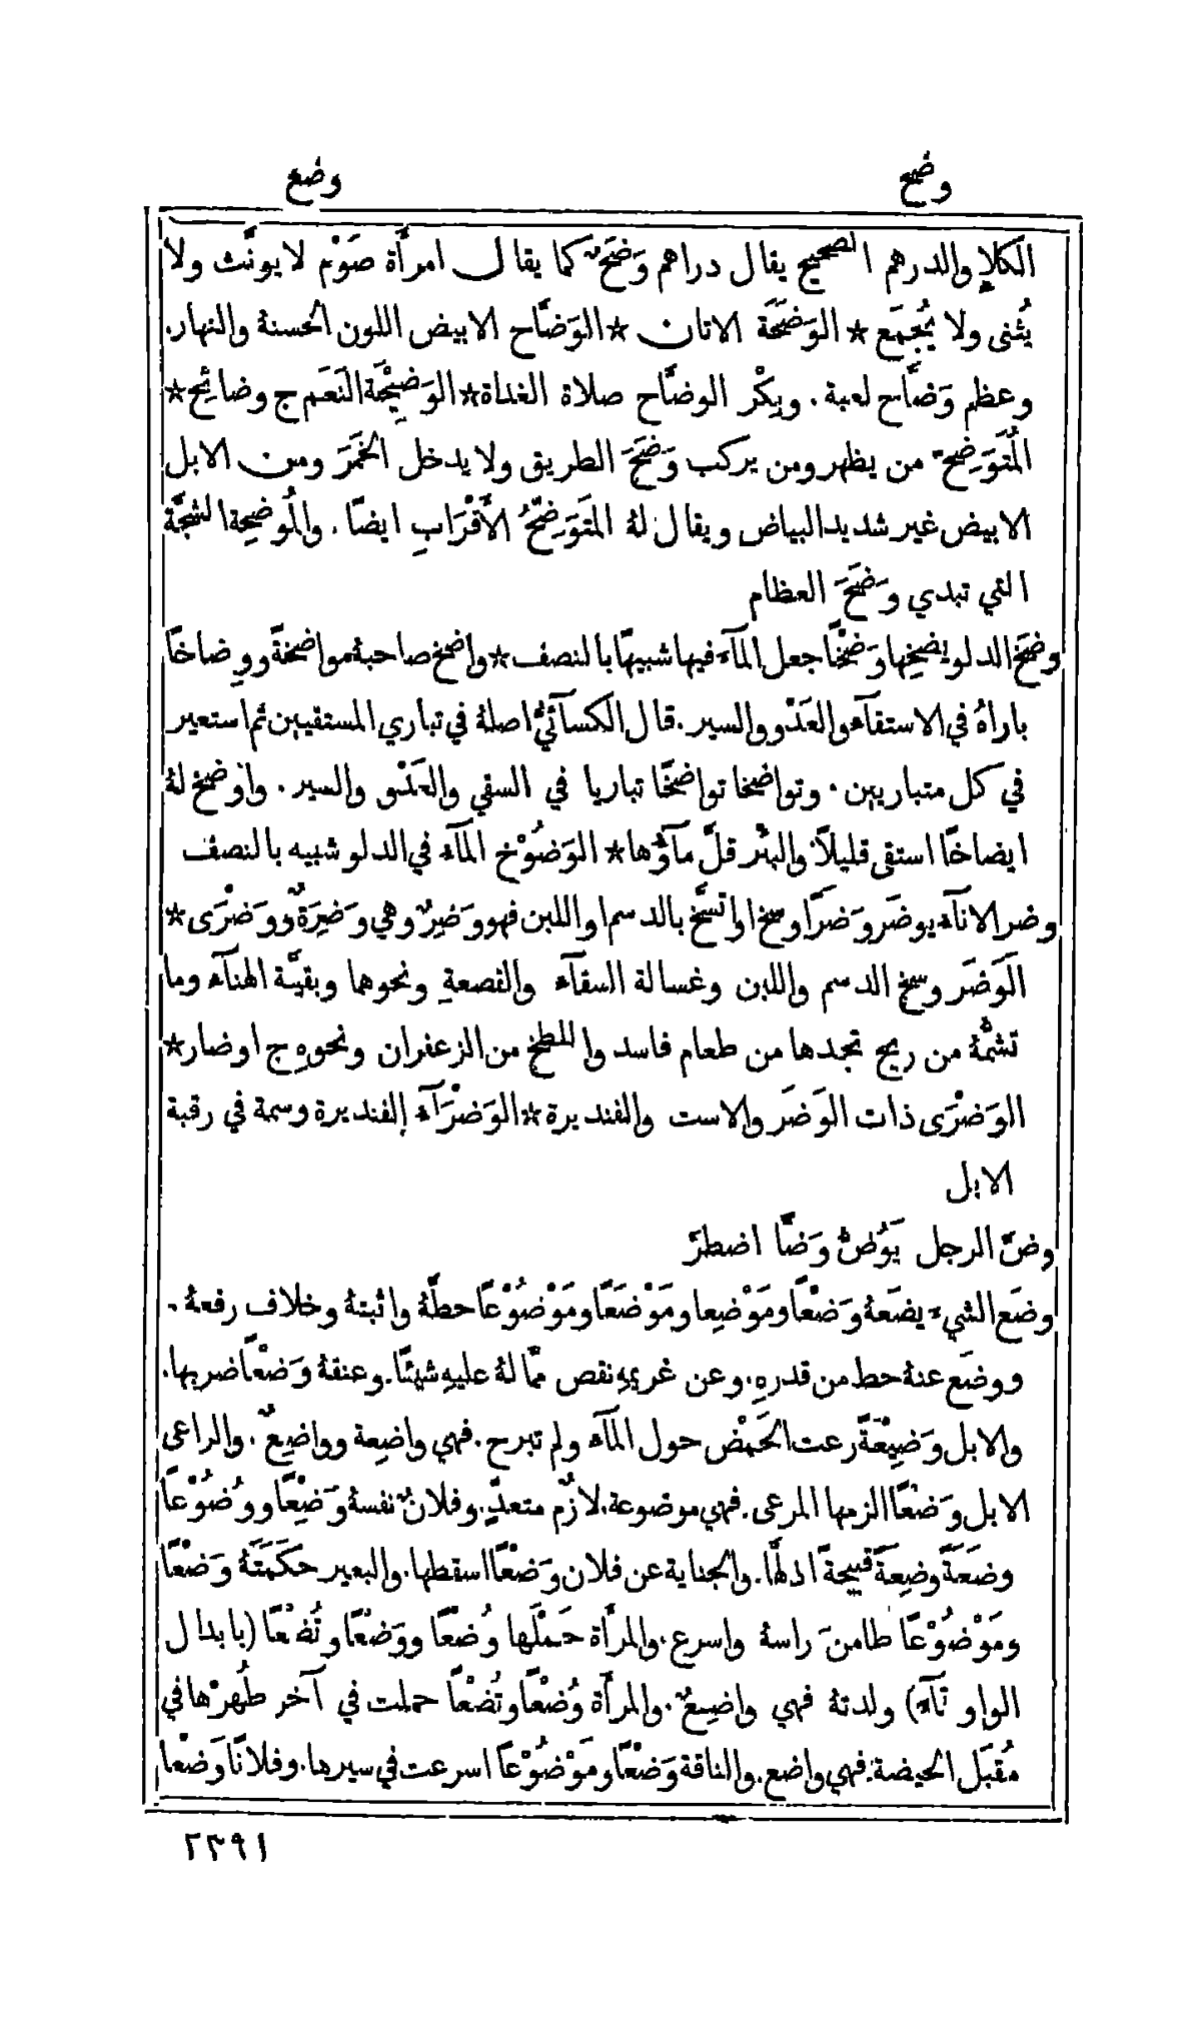 وضح
وضع
الكلإ والدرهم الصحيح يقال دراهم وَضَحٌ كما يقال امرأَة صَوْم لا يونَّث ولا
يُثنى ولا يُجمَع * الوَضَحَة الاتان * الوَضَّاح الابيض اللون الحسنهُ والنهار.
وعظم وَضَّاح لعبة. وبِكْر الوضَّاح صلاة الغداة * الوَضِيْحَة النَعَم ج وضائِح *
المُتَوَضِّح من يظهر ومن يركب وَضَحَ الطريق ولا يدخل الخَمَرَ ومن الابل
الابيض غير شديد البياض ويقال لهُ المتَوَضِّحُ الأَقْرَابِ ايضًا. والمُوضِحة الشجَّة
التي تبدي وَضَحَ العظام
وضَخ الدلو يضِخها وَضْخًا جعل المآء فيها شبيهًا بالنصف * واضخ صاحبهُ مواضخةً ووِضاخًا
باراهُ في الاستقآء والعَدْو والسير. قال الكسآئيُّ اصلهُ في تباري المستقيين ثم استعير
في كل متباريين. وتواضخا تواضخًا تباريا في السقي والعَدْو والسير. واوضخ لهُ
ايضاخًا استقى قليلاً والبئْر قلَّ مآؤُها * الوَضُوْخ المآء في الدلو شبيه بالنصف
وضر الانآء يوضَر وَضَرًا وسخ او اتسَّخ بالدسم او اللبن فهو وَضِرٌ وهي وَضِرَةٌ ووَضْرَى *
الوَضَر وسخ الدسم واللبن وغسالة السقآء والقصعةِ ونحوهما وبقيَّة الهنآء وما
تشمُّهُ من ريح تجدها من طعام فاسد واللطخ من الزعفران ونحوهِ ج اوضار *
الوَضْرَى ذات الوَضَر والاست والفنديرة * الوَضْرَآء الفنديرة وسمة في رقبة
الابل
وضَّ الرجل يَوُضُّ وَضًّا اضطرَّ
وضَع الشيء يضَعهُ وَضْعًا ومَوْضِعا ومَوْضَعًا ومَوْضُوْعًا حطَّهُ واثبتهُ وخلاف رفعهُ.
ووضَع عنهُ حط من قدرهِ. وعن غريمهِ نقص ممَّا لهُ عليهِ شيئًا. وعنقهُ وَضْعًا ضربها.
والابل وَضِيْعَةً رعت الحَمْض حول المآء ولم تبرح. فهي واضِعة وواضِعٌ. والراعي
الابل وَضْعًا الزمها المرعى. فهي موضوعة. لازمٌ متعدٍّ. وفلانٌ نفسهُ وَضْعًا ووُضُوْعًا
وضَعَةً وضِعَةً قبيحةً اذلَّها. والجناية عن فلان وَضْعًا اسقطها. والبعير حَكَمَتَهُ وَضْعًا
ومَوْضُوْعًا طامنَ راسهُ واسرع. والمرأَة حَمْلَها وُضْعًا ووَضْعًا وتُضْعًا (بابدال
الواو تآء) ولدتهُ فهي واضِعٌ. والمرأَة وُضْعًا وتُضْعًا حملت في آخر طُهرْها في
مُقبَل الحيضة. فهي واضع. والناقة وَضْعًا ومَوْضُوْعًا اسرعت في سيرها. وفلانًا وَضْعا
٢٣٩١